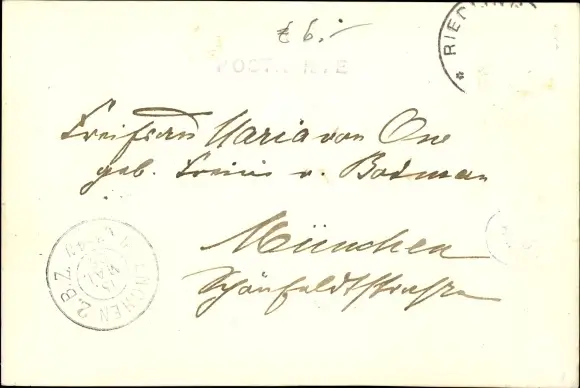 6.-
RIED
POSTKARTE
Freifrau Maria von Ow
geb. Freiin v. Bodman
München
Schönfeldstrasse
MÜNCHEN 2. B.Z.
MAI